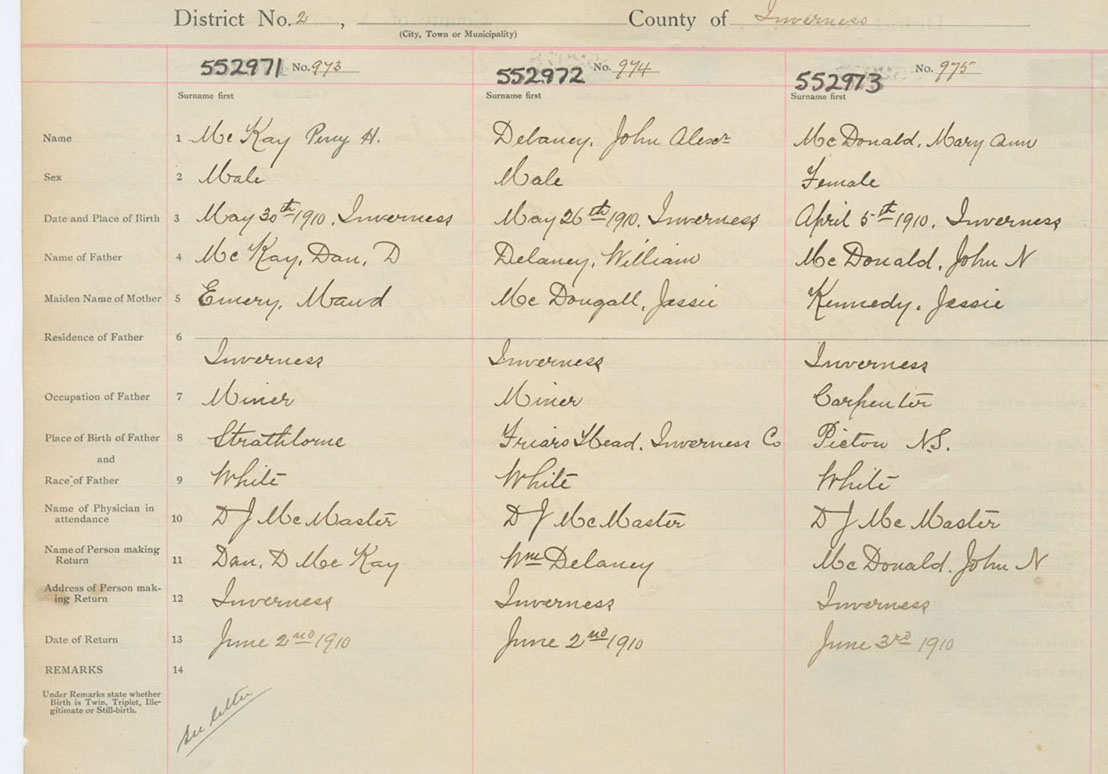 District No. 2, County of Inverness
(City, Town or Municipality)
552971 No. 973 552972 No. 974 552973 No. 975
Surname first Surname first Surname first
Name 1 McKay Percy H. Delaney, John Alexr McDonald, Mary Ann
Sex 2 Male Male Female
Date and Place of Birth 3 May 30th 1910, Inverness May 26th 1910, Inverness April 5th 1910, Inverness
Name of Father 4 McKay, Dan, D Delaney, William McDonald, John N
Maiden Name of Mother 5 Emery, Maud McDougall, Jessie Kennedy, Jessie
Residence of Father 6
Inverness Inverness Inverness
Occupation of Father 7 Miner Miner Carpenter
Place of Birth of Father 8 Strathlorne Friars Head, Inverness Co Pictou N.S.
and
Race of Father 9 White White White
Name of Physician in
attendance 10 D J McMaster D J McMaster D J McMaster
Name of Person making
Return 11 Dan, D McKay Wm Delaney McDonald, John N
Address of Person mak-
ing Return 12 Inverness Inverness Inverness
Date of Return 13 June 2nd 1910 June 2nd 1910 June 3rd 1910
REMARKS 14
Under Remarks state whether
Birth is Twin, Triplet, Ille-
gitimate or Still-birth.
See letter